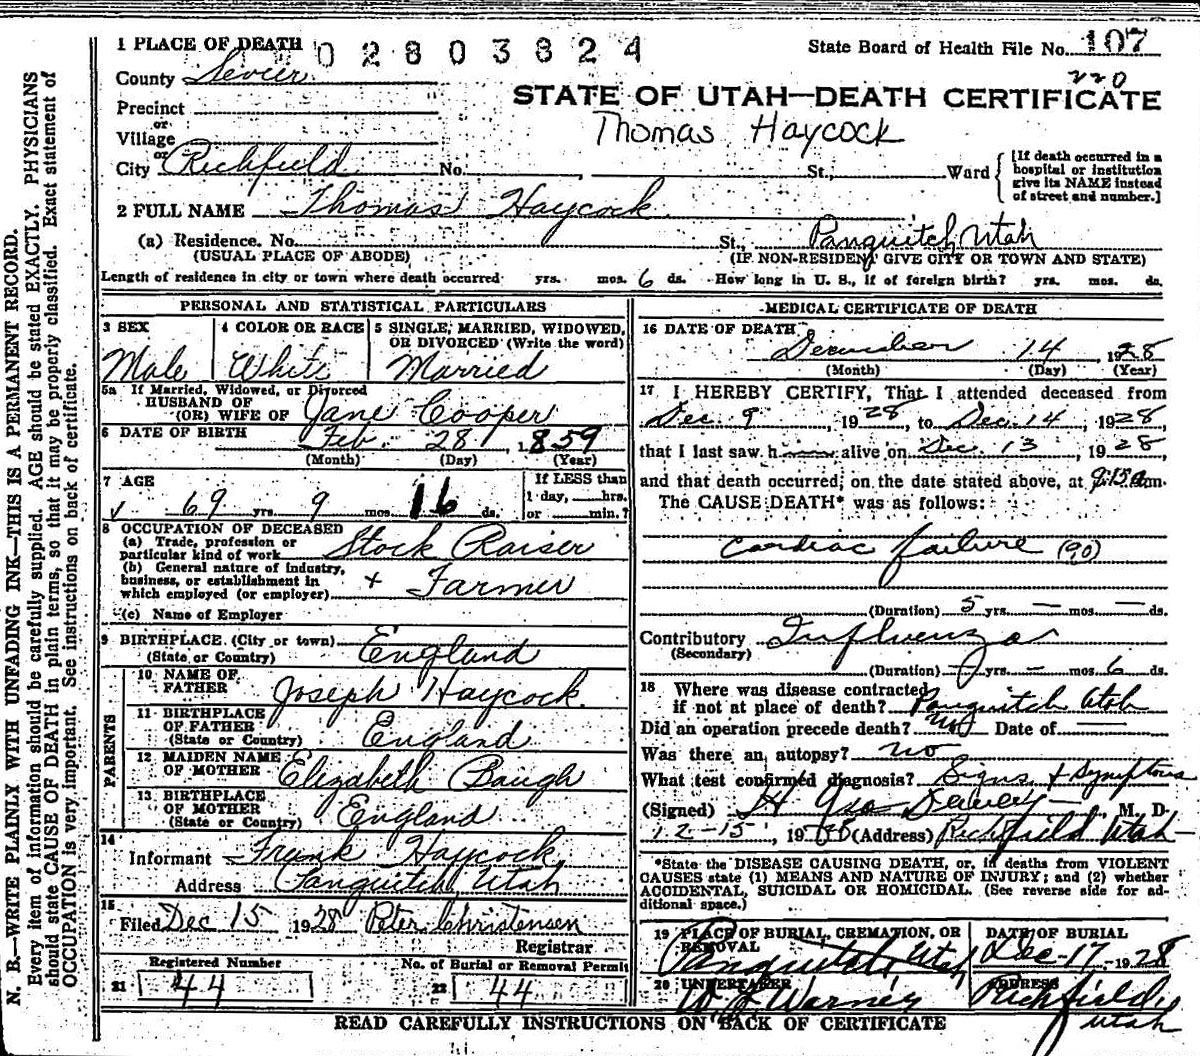 1 PLACE OF DEATH 02803824 State Board of Health File No. 107
County Sevier 220
STATE OF UTAH—DEATH CERTIFICATE
Precinct
or Thomas Haycock
Village
or
City Richfield No. , St., Ward
[If death occurred in a hospital or institution give its NAME instead of street and number.]
2 FULL NAME Thomas Haycock
(a) Residence. No. St., Panguitch, Utah
(USUAL PLACE OF ABODE) (IF NON-RESIDENT GIVE CITY OR TOWN AND STATE)
Length of residence in city or town where death occurred yrs. mos. 6 ds. How long in U. S., if of foreign birth? yrs. mos. ds.
PERSONAL AND STATISTICAL PARTICULARS
3 SEX
Male
4 COLOR OR RACE
White
5 SINGLE, MARRIED, WIDOWED, OR DIVORCED (Write the word)
Married
5a If Married, Widowed, or Divorced
HUSBAND OF
(OR) WIFE OF Jane Cooper
6 DATE OF BIRTH Feb. 28 1859
(Month) (Day) (Year)
7 AGE
69 yrs. 9 mos. 16 ds.
If LESS than
1 day, hrs.
or min.?
8 OCCUPATION OF DECEASED
(a) Trade, profession or
particular kind of work Stock Raiser
(b) General nature of industry,
business, or establishment in
which employed (or employer) + Farmer
(c) Name of Employer
9 BIRTHPLACE (City or town)
(State or Country) England
PARENTS
10 NAME OF
FATHER Joseph Haycock
11 BIRTHPLACE
OF FATHER
(State or Country) England
12 MAIDEN NAME
OF MOTHER Elizabeth Baugh
13 BIRTHPLACE
OF MOTHER
(State or Country) England
14
Informant Frank Haycock
Address Panguitch, Utah
15
Filed Dec 15 1928 Peter Christensen
Registrar
Registered Number No. of Burial or Removal Permit
21 44 22 44
MEDICAL CERTIFICATE OF DEATH
16 DATE OF DEATH
December 14, 1928
(Month) (Day) (Year)
17 I HEREBY CERTIFY, That I attended deceased from
Dec. 9, 1928, to Dec. 14, 1928
that I last saw h alive on Dec. 13, 1928
and that death occurred, on the date stated above, at 9:15 am.
The CAUSE DEATH* was as follows:
Cardiac failure (90)
(Duration) 5 yrs. — mos. — ds.
Contributory Influenza
(Secondary)
(Duration) yrs. — mos. 6 ds.
18 Where was disease contracted
if not at place of death? Panguitch Utah
Did an operation precede death? no Date of
Was there an autopsy? no
What test confirmed diagnosis? Signs + Symptoms
(Signed) H. Geo Dewey, M. D.
12-15, 19 (Address) Richfield Utah
*State the DISEASE CAUSING DEATH, or, in deaths from VIOLENT
CAUSES state (1) MEANS AND NATURE OF INJURY; and (2) whether
ACCIDENTAL, SUICIDAL OR HOMICIDAL. (See reverse side for ad-
ditional space.)
19 PLACE OF BURIAL, CREMATION, OR
REMOVAL
Panguitch, Utah
DATE OF BURIAL
Dec-17-1928
20 UNDERTAKER
ADDRESS
Richfield, Utah
READ CAREFULLY INSTRUCTIONS ON BACK OF CERTIFICATE
N. B.—WRITE PLAINLY WITH UNFADING INK—THIS IS A PERMANENT RECORD.
Every item of information should be carefully supplied. AGE should be stated EXACTLY. PHYSICIANS
should state CAUSE OF DEATH in plain terms, so that it may be properly classified. Exact statement of
OCCUPATION is very important. See instructions on back of certificate.